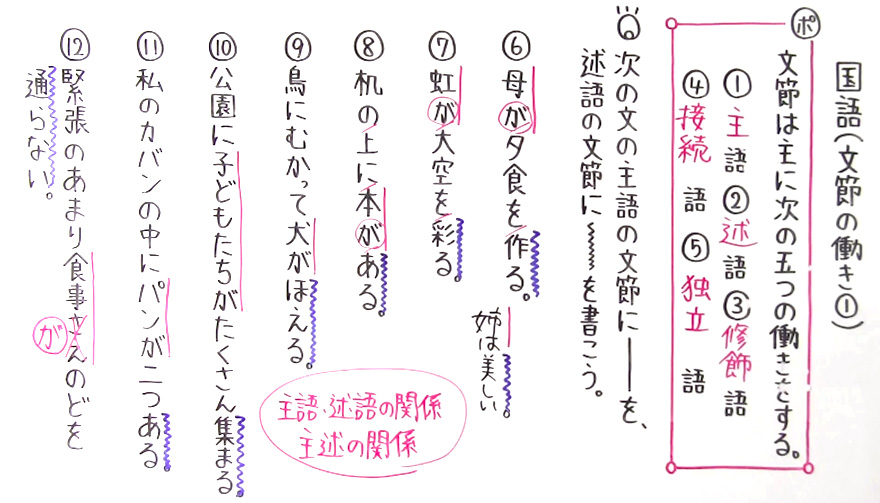 国語(文節の働き①)
ポ 文節は主に次の五つの働きをする。
①主語 ②述語 ③修飾語
④接続語 ⑤独立語
Q 次の文の主語の文節に――を、
述語の文節に〰〰を書こう。
⑥ 母が夕食を作る。
姉は美しい。
⑦ 虹が大空を彩る。
⑧ 机の上に本がある。
⑨ 鳥にむかって犬がほえる。
⑩ 公園に子どもたちがたくさん集まる。
主語・述語の関係
主述の関係
⑪ 私のカバンの中にパンが二つある。
⑫ 緊張のあまり食事さえのどを
が
通らない。